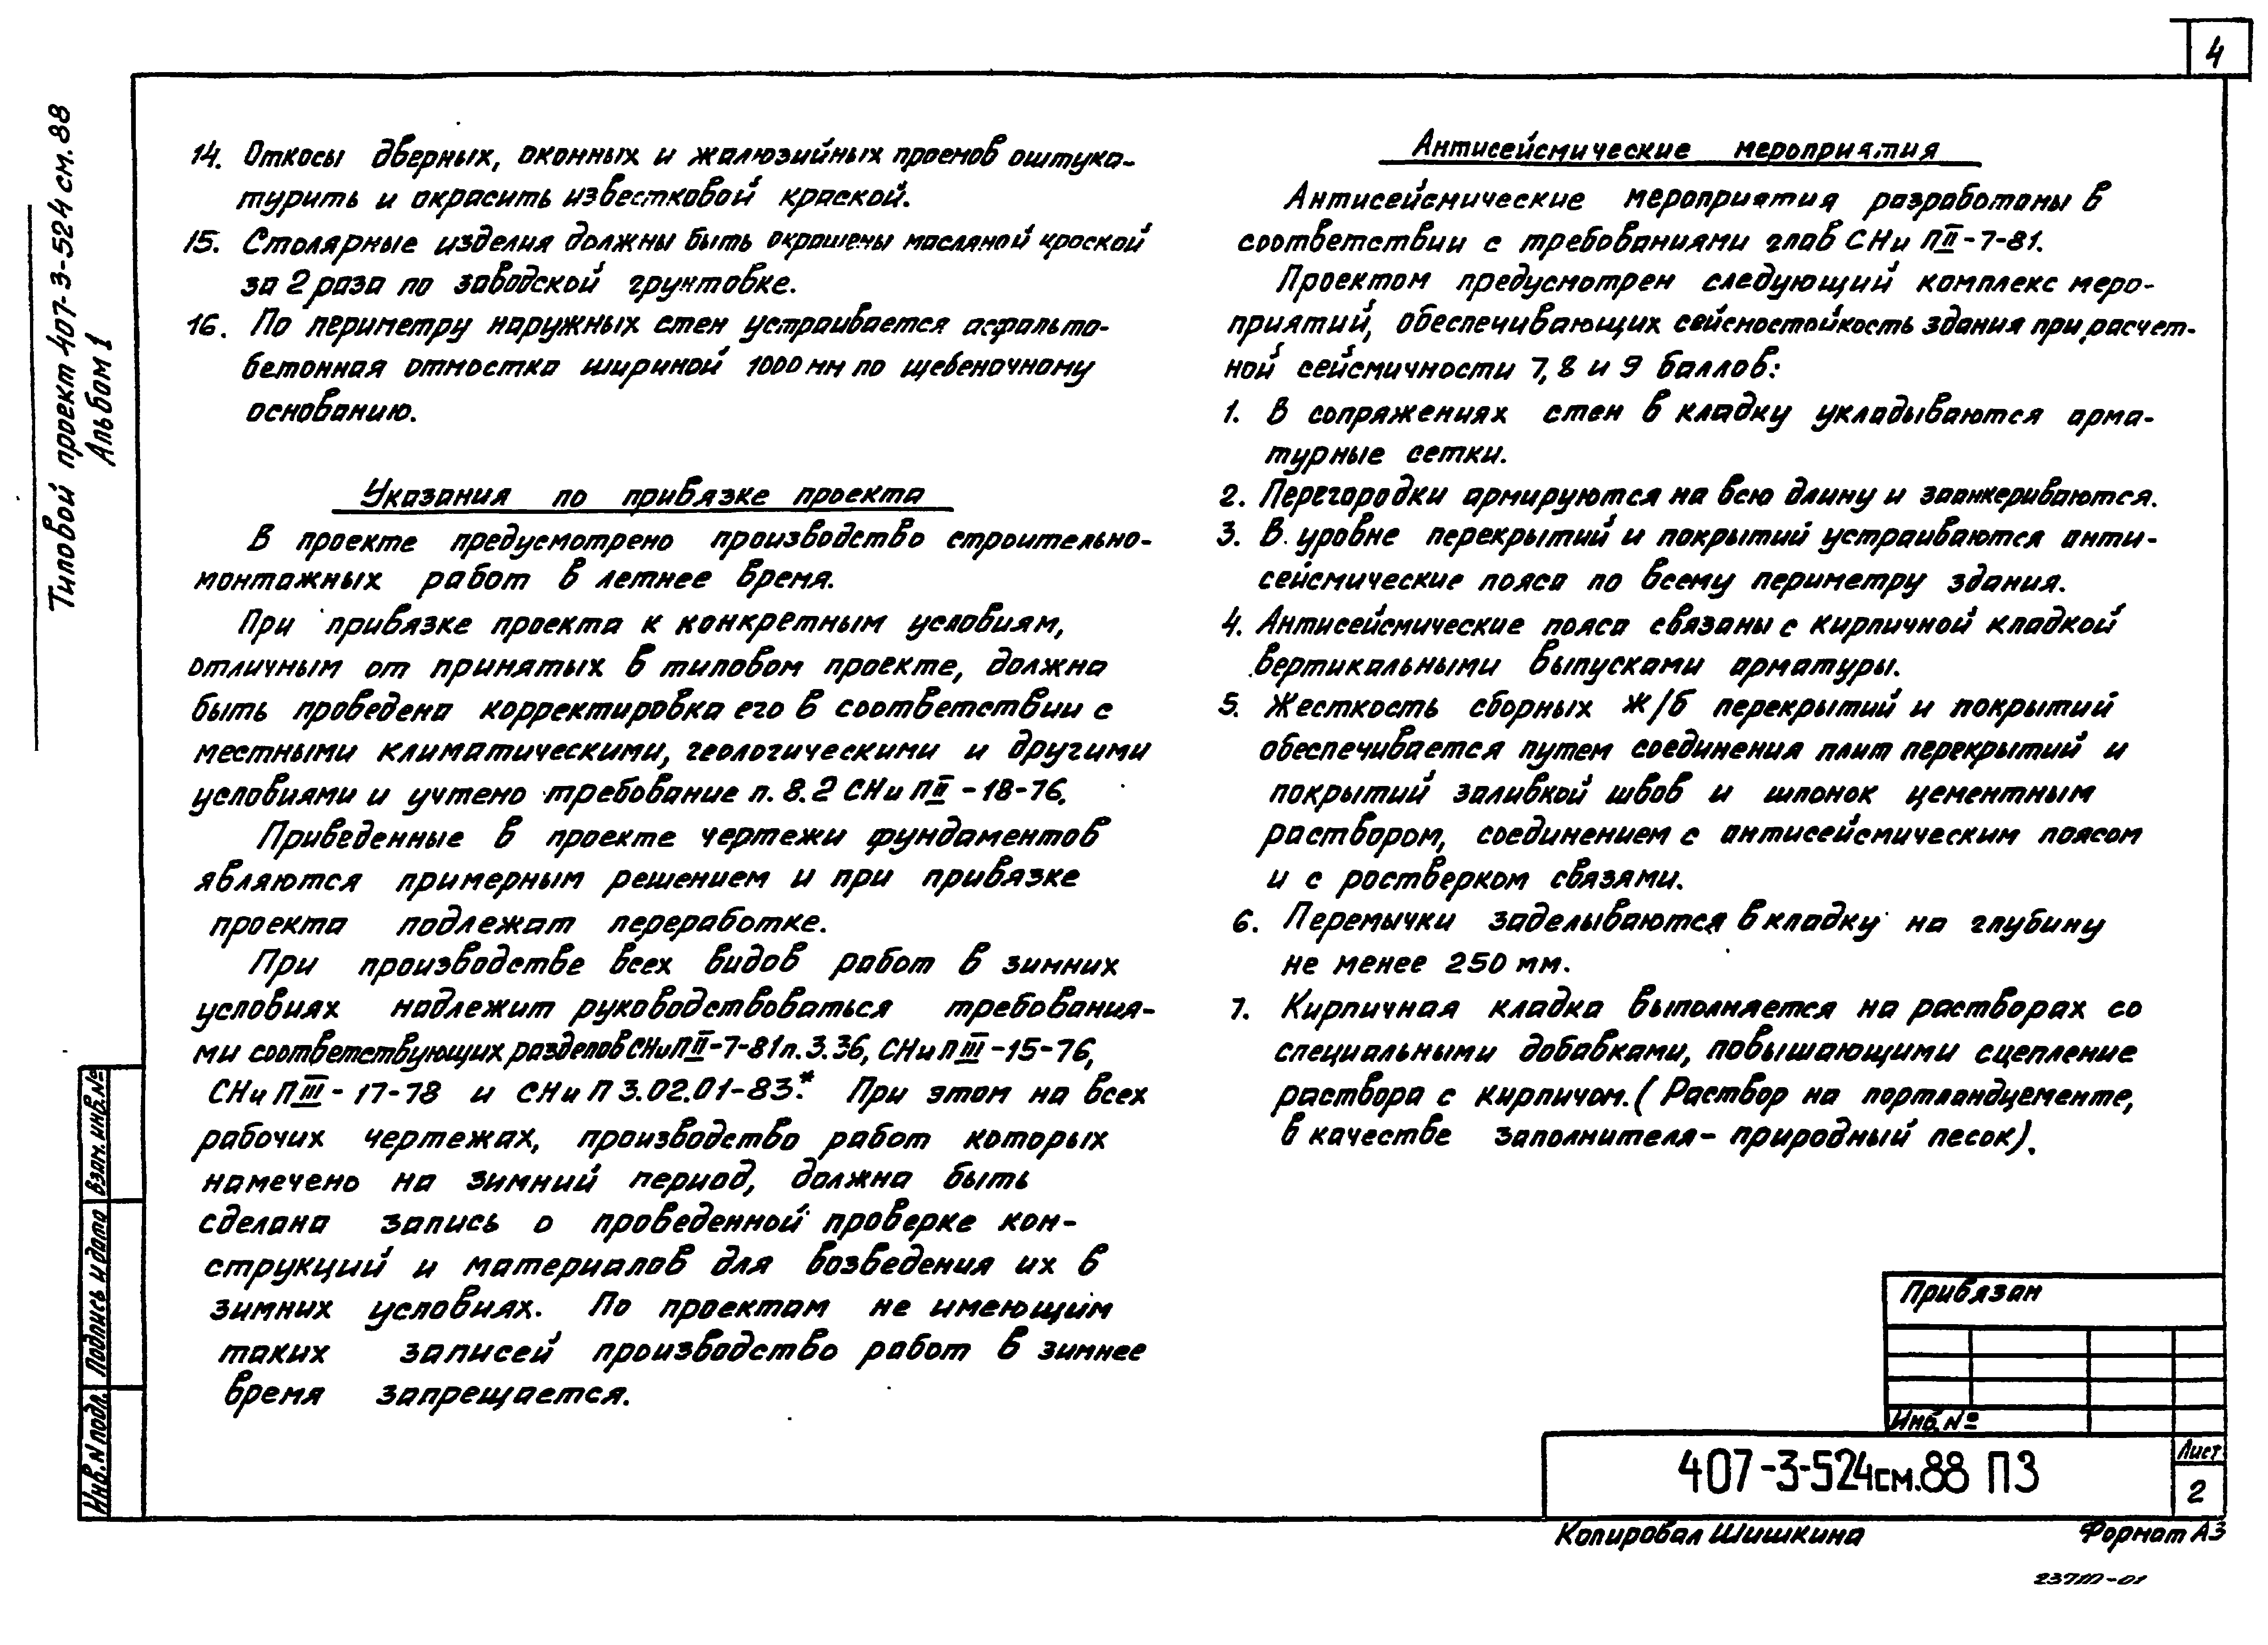 4
Типовой проект 407-3-524 см. 88
Альбом 1
14. Откосы дверных, оконных и жалюзийных проемов оштука-
турить и окрасить известковой краской.
15. Столярные изделия должны быть окрашены масляной краской
за 2 раза по заводской грунтовке.
16. По периметру наружных стен устраивается асфальто-
бетонная отмостка шириной 1000 мм по щебеночному
основанию.
Указания по привязке проекта
В проекте предусмотрено производство строительно-
монтажных работ в летнее время.
При привязке проекта к конкретным условиям,
отличным от принятых в типовом проекте, должна
быть проведена корректировка его в соответствии с
местными климатическими, геологическими и другими
условиями и учтено требование п. 8.2 СНиП II-18-76.
Приведенные в проекте чертежи фундаментов
являются примерным решением и при привязке
проекта подлежат переработке.
При производстве всех видов работ в зимних
условиях надлежит руководствоваться требования-
ми соответствующих разделов СНиП II-7-81 п. 3.36, СНиП III-15-76,
СНиП III-17-78 и СНиП 3.02.01-83*. При этом на всех
рабочих чертежах, производство работ которых
намечено на зимний период, должна быть
сделана запись о проведенной проверке кон-
струкций и материалов для возведения их в
зимних условиях. По проектам не имеющим
таких записей производство работ в зимнее
время запрещается.
Антисейсмические мероприятия
Антисейсмические мероприятия разработаны в
соответствии с требованиями глав СНиП II-7-81.
Проектом предусмотрен следующий комплекс меро-
приятий, обеспечивающих сейсмостойкость здания при расчет-
ной сейсмичности 7, 8 и 9 баллов:
1. В сопряжениях стен в кладку укладываются арма-
турные сетки.
2. Перегородки армируются на всю длину и заанкериваются.
3. В уровне перекрытий и покрытий устраиваются анти-
сейсмические пояса по всему периметру здания.
4. Антисейсмические пояса связаны с кирпичной кладкой
вертикальными выпусками арматуры.
5. Жесткость сборных ж/б перекрытий и покрытий
обеспечивается путем соединения плит перекрытий и
покрытий заливкой швов и шпонок цементным
раствором, соединением с антисейсмическим поясом
и с ростверком связями.
6. Перемычки заделываются в кладку на глубину
не менее 250 мм.
7. Кирпичная кладка выполняется на растворах со
специальными добавками, повышающими сцепление
раствора с кирпичом. (Раствор на портландцементе,
в качестве заполнителя - природный песок).
Взам. инв. №
Подпись и дата
Инв. N подл.
Привязан
Инв. №
407-3-524см.88 ПЗ
Лист
2
Копировал Шишкина
Формат А3